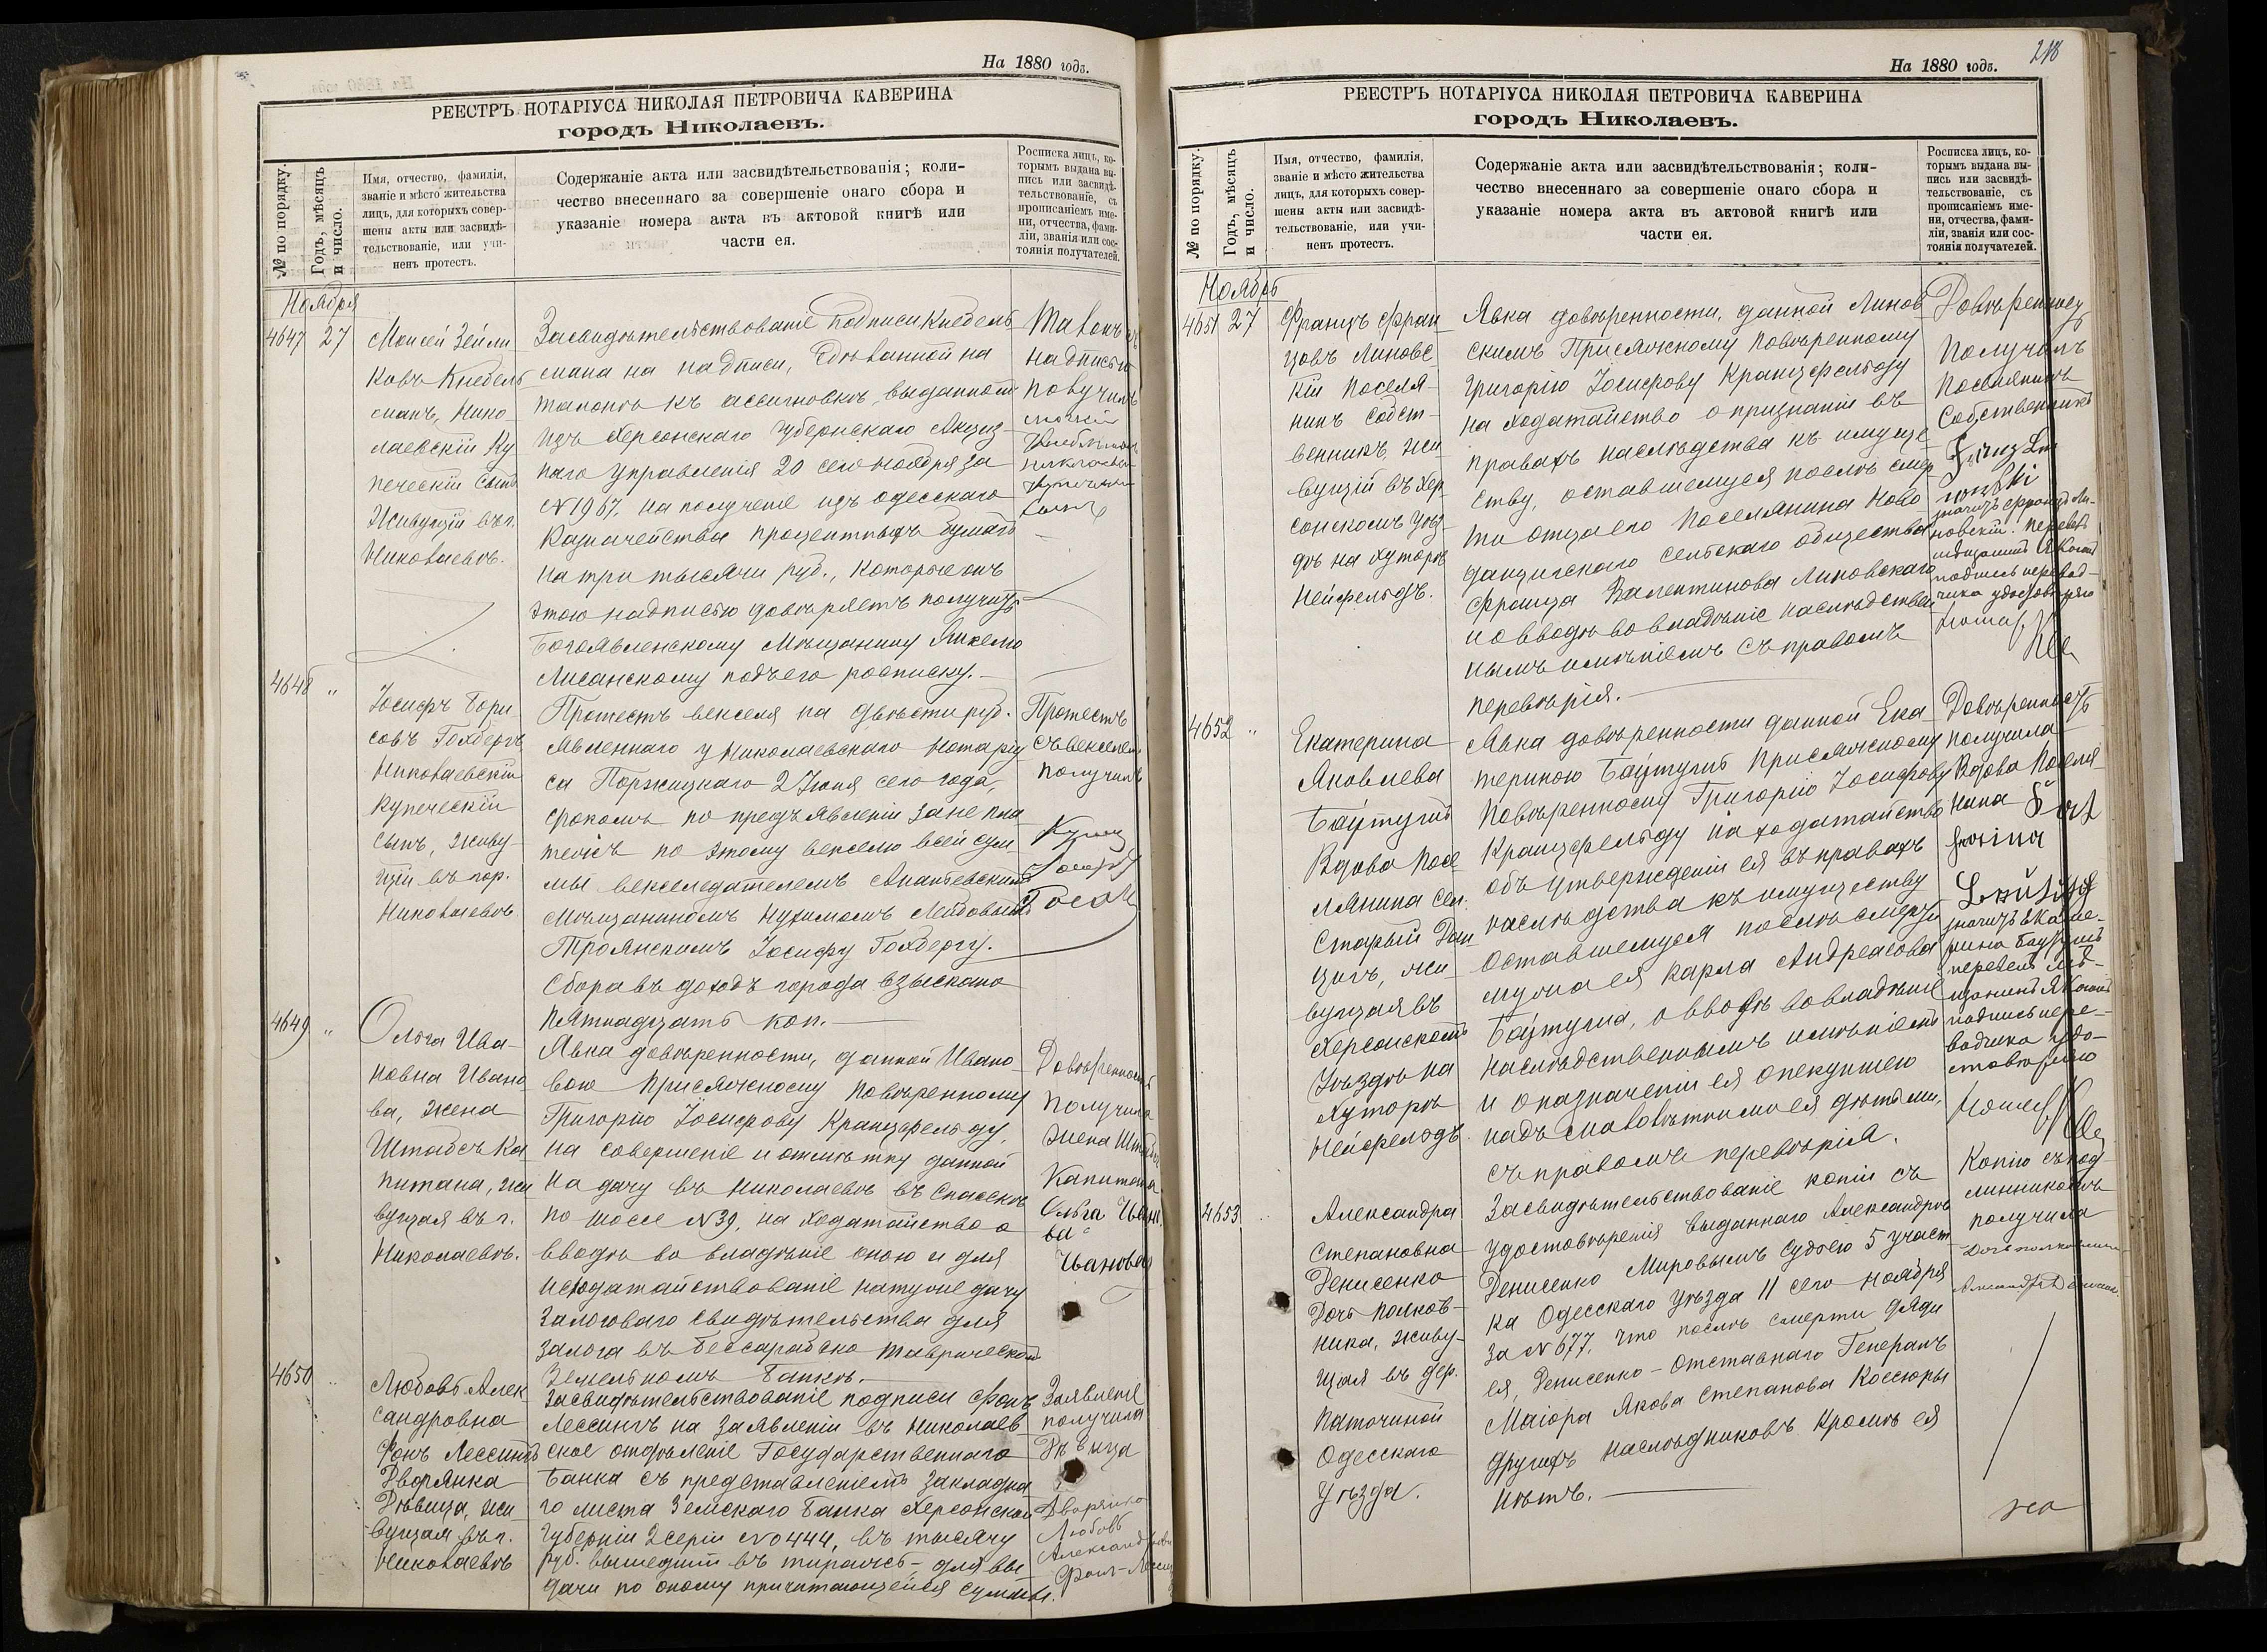 На 1880 годъ.
РЕЕСТРЪ НОТАРІУСА НИКОЛАЯ ПЕТРОВИЧА КАВЕРИНА
городъ Николаевъ.
№ по порядку.
Годъ, мѣсяцъ
и число.
Имя, отчество, фамилія,
званіе и мѣсто жительства
лицъ, для которыхъ совер-
шены акты или засвидѣ-
тельствованіе, или учи-
ненъ протестъ.
Содержаніе акта или засвидѣтельствованія; коли-
чество внесеннаго за совершеніе онаго сбора и
указаніе номера акта въ актовой книгѣ или
части ея.
Росписка лицъ, ко-
торымъ выдана вы-
пись или засвидѣ-
тельствованіе, съ
прописаніемъ име-
ни, отчества, фами-
ліи, званія или сос-
тоянія получателей.
Ноября
4647 27
Моисей Зейли
ковъ Кнебель
манъ, Нико
лаевскій Ку
печескій сынъ
Живущій въ г.
Николаевѣ.
Засвидѣтельствованіе подписи Кнебель
мана на надписи, сдѣланной на
талонѣ къ ассигновкѣ, выданной
изъ Херсонскаго Губернскаго Акциз
наго Управленія 20 сего ноября за
N 1967, на полученіе изъ Одесскаго
Казначейства процентныхъ бумагъ
на три тысячи руб., которые онъ
этою надписью довѣряетъ получить
Богоявленскому Мѣщанину Янкелю
Лисанскому подъ его росписку.
Талонъ съ
надписью
получилъ
4648 "
Іосифъ Бори
совъ Голдбергъ
Николаевскій
купеческій
сынъ, живу-
щій въ гор.
Николаевѣ.
Протестъ векселя на двѣсти руб.
явленнаго у Николаевскаго Нотаріу
са Поржицкаго 2 Іюня сего года,
срокомъ по предъявленіи за не пла
тежъ по этому векселю всей сум-
мы векселедателемъ Ананьевскимъ
мѣщаниномъ Нухимомъ Лейбовымъ
Троянскимъ Іосифу Голдбергу.
Сбора въ доходъ города взыскано
пятнадцать коп.
Протестъ
съ векселемъ
получилъ
4649 "
Ольга Ива-
новна Ивано
ва, жена
Штабсъ Ка
питана, жи
вущая въ г.
Николаевѣ.
Явка довѣренности, данной Ивано-
вою Присяжному Повѣренному
Григорію Іосифову Кранцфельду,
на совершеніе и отмѣтку данной
на дачу въ Николаевѣ въ Спасскѣ
по шоссе N 39, на ходатайство о
вводѣ во владѣніе оною и для
исходатайствованіе на туже дачу
залоговаго свидѣтельства для
залога въ Бессарабско Таврическомъ
Земельномъ Банкѣ.
Довѣренность
получила
жена Штабсъ
Капитана
Ольга Ивано
ва
Иванова
4650 "
Любовь Алек
сандровна
Фонъ Лессингъ
Дворянка
Дѣвица, жи
вущая въ г.
Николаевѣ
Засвидѣтельствованіе подписи Фонъ
Лессингъ на заявленіи въ Николаев
ское отдѣленіе Государственнаго
Банка съ представленіемъ закладна
го листа Земскаго Банка Херсонской
Губерніи 2 серіи No 444, въ тысячу
руб. вышедшій въ тиражъ - для вы
дачи по оному причитающейся суммы.
Заявленіе
получила
Дѣвица
Дворянка
Любовь
Александровна
Фонъ-Лессингъ
На 1880 годъ.
218
РЕЕСТРЪ НОТАРІУСА НИКОЛАЯ ПЕТРОВИЧА КАВЕРИНА
городъ Николаевъ.
№ по порядку.
Годъ, мѣсяцъ
и число.
Имя, отчество, фамилія,
званіе и мѣсто жительства
лицъ, для которыхъ совер-
шены акты или засвидѣ-
тельствованіе, или учи-
ненъ протестъ.
Содержаніе акта или засвидѣтельствованія; коли-
чество внесеннаго за совершеніе онаго сбора и
указаніе номера акта въ актовой книгѣ или
части ея.
Росписка лицъ, ко-
торымъ выдана вы-
пись или засвидѣ-
тельствованіе, съ
прописаніемъ име-
ни, отчества, фами-
ліи, званія или сос-
тоянія получателей.
Ноябрь
4651 27
Францъ Фран
цовъ Линовс
кій Поселя-
нинъ собст-
венникъ, жи
вущій въ Хер
сонскомъ Уѣз
дѣ на хуторѣ
Нейфельдъ.
Явка довѣренности, данной Линов
скимъ Присяжному Повѣренному
Григорію Іосифову Кранцфельду
на ходатайство о признаніи въ
правахъ наслѣдства къ имуще
ству, оставшемуся послѣ смер
ти отца его Поселянина Ново
данцигскаго сельскаго общества
Франца Валентинова Линовскаго
и о вводѣ во владѣніе наслѣдствен
нымъ имѣніемъ съ правомъ
перевѣрія.
Довѣренность
Получилъ
Поселянинъ
Собственникъ
значитъ Францъ Ли-
новскій. Перевелъ
подпись перевод-
чика удостовѣряю
4652 "
Екатерина
Яковлева
Баутушъ
Вдова Посе
лянина сел.
Старый Дан
цигъ, жи
вущая въ
Херсонскомъ
Уѣздѣ на
хуторѣ
Нейфельдъ.
Явка довѣренности данной Ека
териною Баутушъ Присяжному
Повѣренному Григорію Іосифову
Кранцфельду на ходатайство
объ утвержденіи ея въ правахъ
наслѣдства къ имуществу
оставшемуся послѣ смерти
мужа ея Карла Андреасова
Баутуша, о вводѣ во владѣніе
наслѣдственнымъ имѣніемъ
и о назначеніи ея опекуншею
надъ малолѣтними ея дѣтьми,
съ правомъ перевѣрія.
Довѣренность
получила
Вдова Поселя-
нина
значитъ Екате-
рина Баутушъ
перевелъ мѣ-
подпись пере-
водчика удо-
стовѣряю
4653
Александра
Степановна
Денисенко
Дочь полков-
ника, живу-
щая въ дер.
Паточиной
Одесскаго
Уѣзда.
Засвидѣтельствованіе копіи съ
удостовѣренія выданнаго Александрѣ
Денисенко Мировымъ Судьею 5 участ
ка Одесскаго уѣзда 11 сего ноября
за N 677, что послѣ смерти дяди
ея, Денисенко - отставнаго Генералъ
Маіора Якова Степанова Коссюры
другихъ наслѣдниковъ кромѣ ея
нѣтъ.
Копію съ под-
линникомъ
получила
Дочь полковника